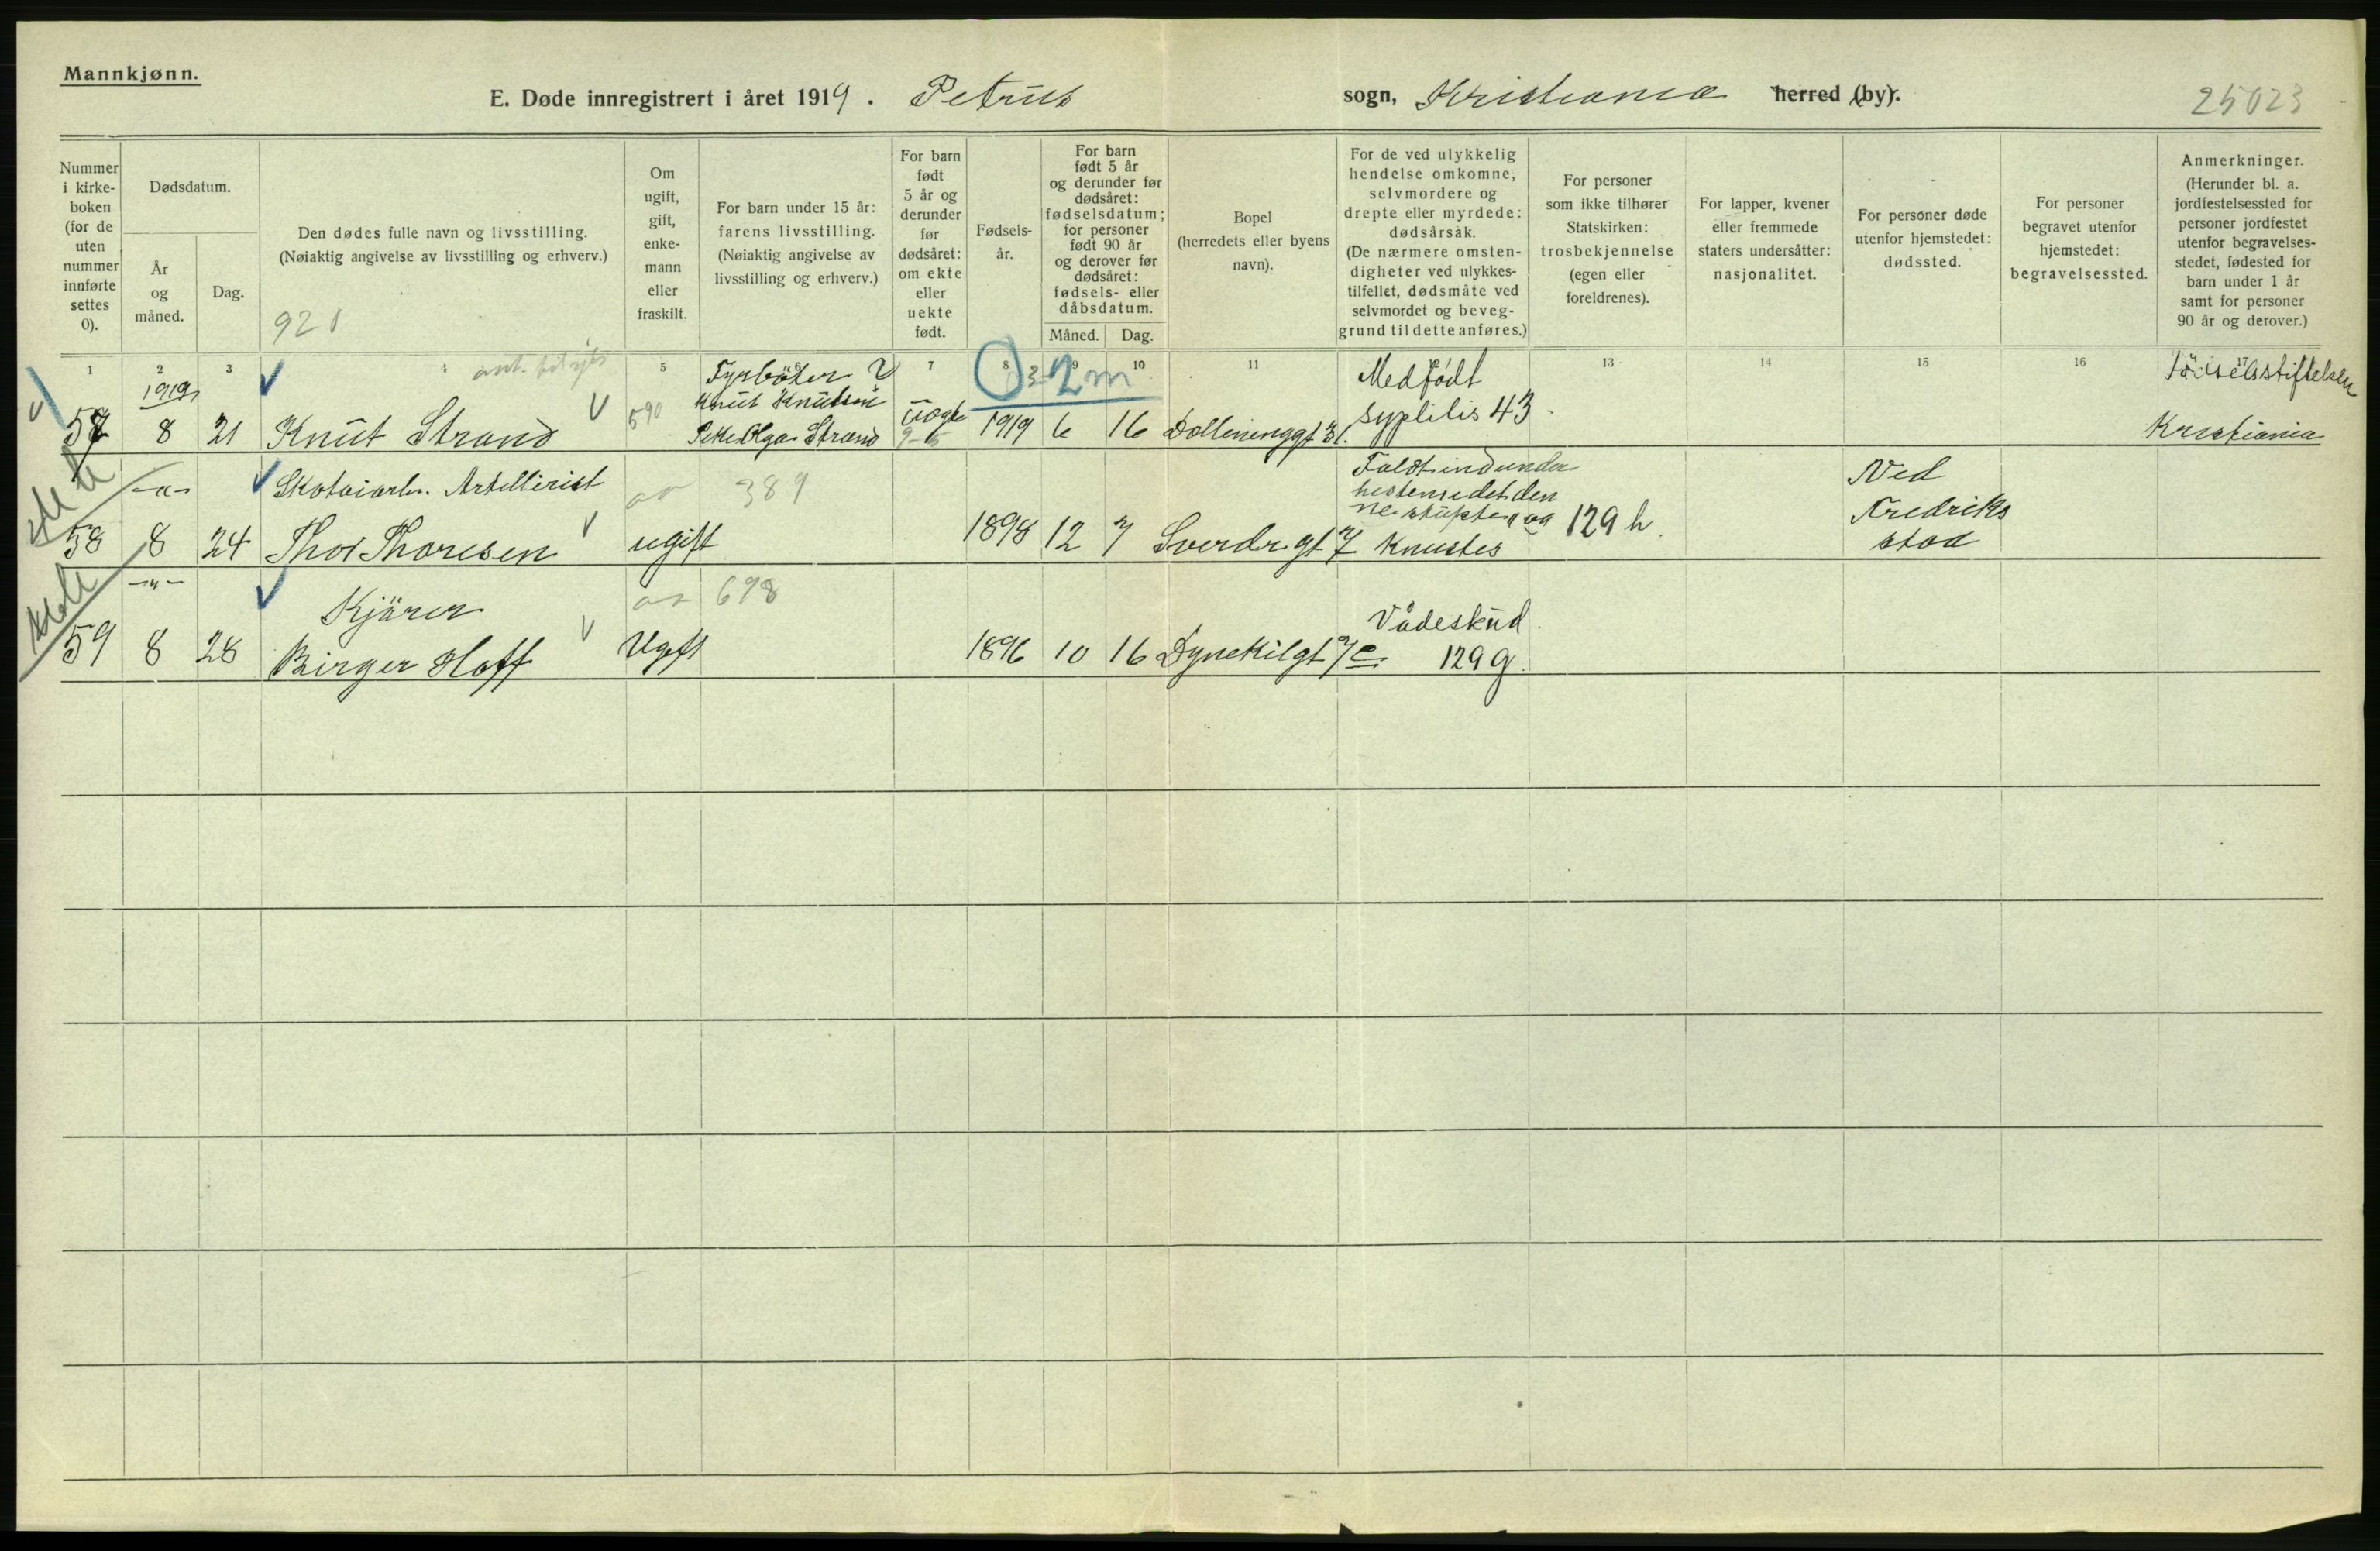 Mannkjønn.
E. Døde innregistrert i året 1919. Petrus sogn, Kristiania herred (by).
25023
Nummer i kirke-boken (for de uten nummer innførte settes 0).
Dødsdatum.
År og måned.
Dag.
Den dødes fulle navn og livsstilling.
(Nøiaktig angivelse av livsstilling og erhverv.)
920
Om ugift, gift, enke-mann eller fraskilt.
For barn under 15 år: farens livsstilling.
(Nøiaktig angivelse av livsstilling og erhverv.)
For barn født 5 år og derunder før dødsåret: om ekte eller uekte født.
Fødsels-år.
For barn født 5 år og derunder før dødsåret: fødselsdatum; for personer født 90 år og derover før dødsåret: fødsels- eller dåbsdatum.
Måned. Dag.
Bopel (herredets eller byens navn).
For de ved ulykkelig hendelse omkomne, selvmordere og drepte eller myrdede: dødsårsak.
(De nærmere omsten-digheter ved ulykkes-tilfellet, dødsmåte ved selvmordet og beveg-grund til dette anføres.)
For personer som ikke tilhører Statskirken: trosbekjennelse (egen eller foreldrenes).
For lapper, kvener eller fremmede staters undersåtter: nasjonalitet.
For personer døde utenfor hjemstedet: dødssted.
For personer begravet utenfor hjemstedet: begravelsessted.
Anmerkninger.
(Herunder bl. a. jordfestelsessted for personer jordfestet utenfor begravelses-stedet, fødested for barn under 1 år samt for personer 90 år og derover.)
1 2 3 4 5 6 7 8 9 10 11 13 14 15 16 17
1919
Fyrbøter
Knut Knutsen
2 m
Medfødt
Fødselsstiftelsen
57 8 21 Knut Strand 590 Pike Olga Strand uegte 1919 6 16 31. syplilis 43
Kristiania
-"- Skotøiarb. Artillerist 389
Faldt ind under
hesten idet den
58 8 24 Thor Thoresen ugift 1898 12 7 Sverdr.gt 7 og knustes 129 h.
Ved
Fredrik
stad
-"- Kjører 698
59 8 28 Birger Hoff Ugift 1896 10 16 Dynekilgt 7c
Vådeskud.
129 g.